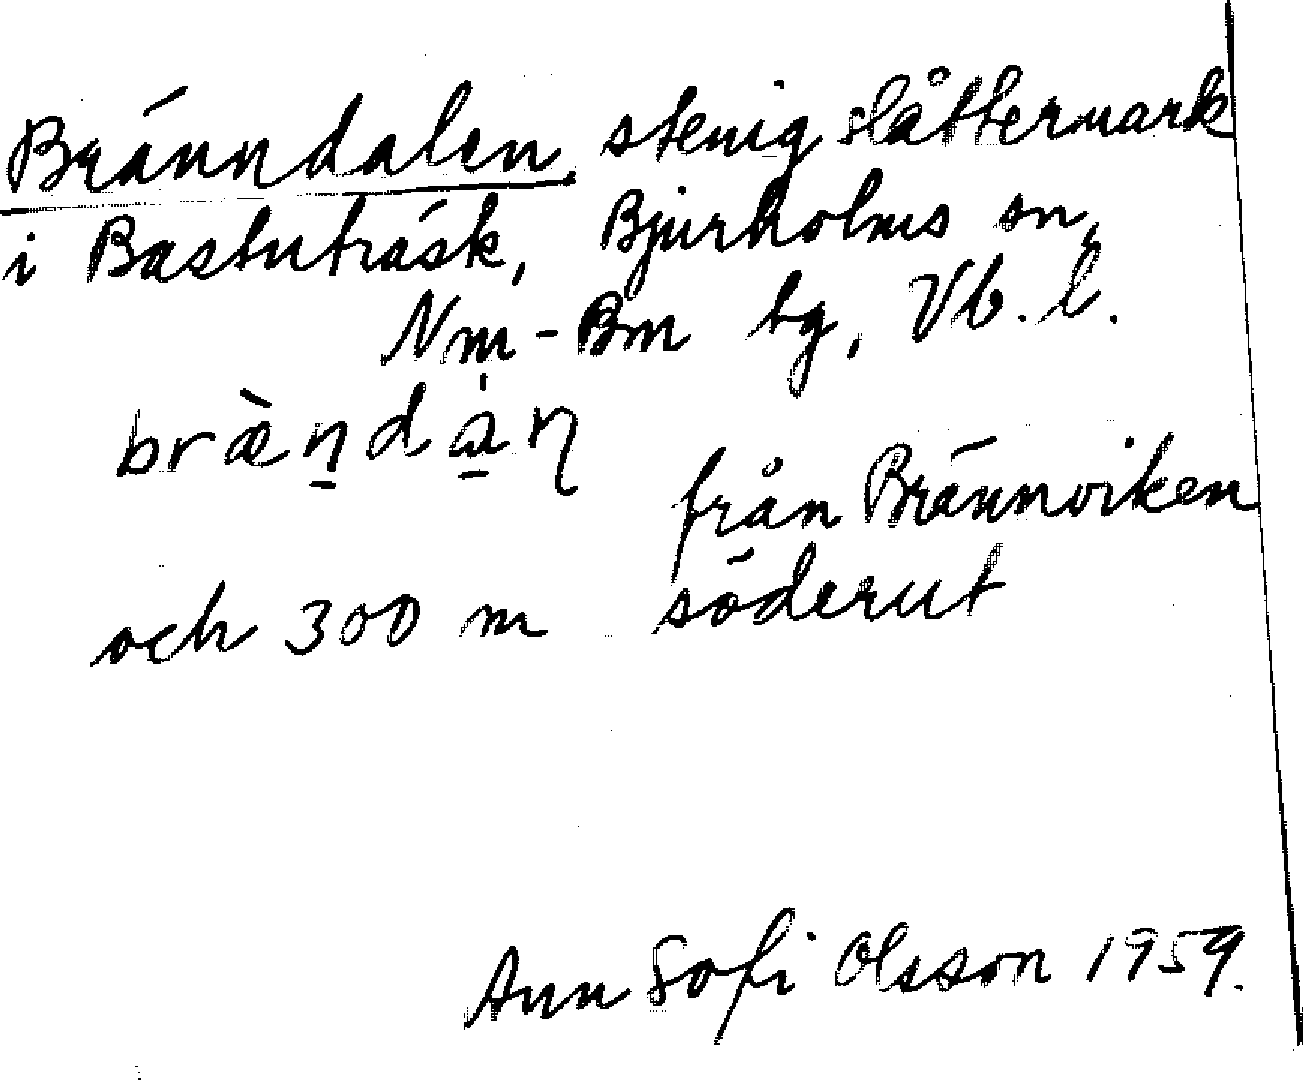 Bränndalen, stenig slåttermark
i Bastuträsk, Bjurholms sn,
Nm-Bm tg, Vb. l.
från Brännviken
och 300 m söderut
Ann Sofi Olsson 1959.